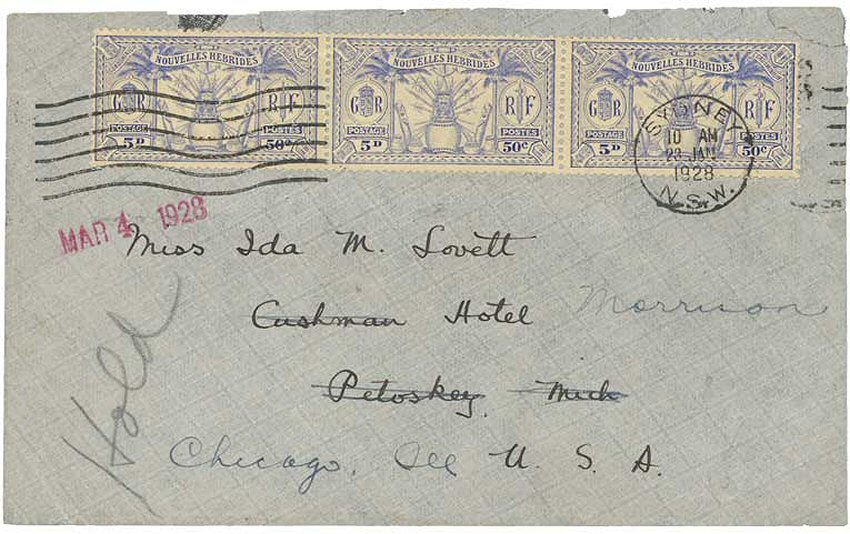 NOUVELLES HEBRIDES NOUVELLES HEBRIDES NOUVELLES HEBRIDES
G R R F G R R F G R R F
POSTAGE POSTES POSTAGE POSTES POSTAGE POSTES
5D 50c 5D 50c 5D 50c
SYDNEY
10 AM
23 JAN
1928
N.S.W.
MAR 4 1928
Miss Ida M. Lovett
Cushman Hotel Morrison
Petoskey, Mich
Chicago, Ill U. S. A.
Hold